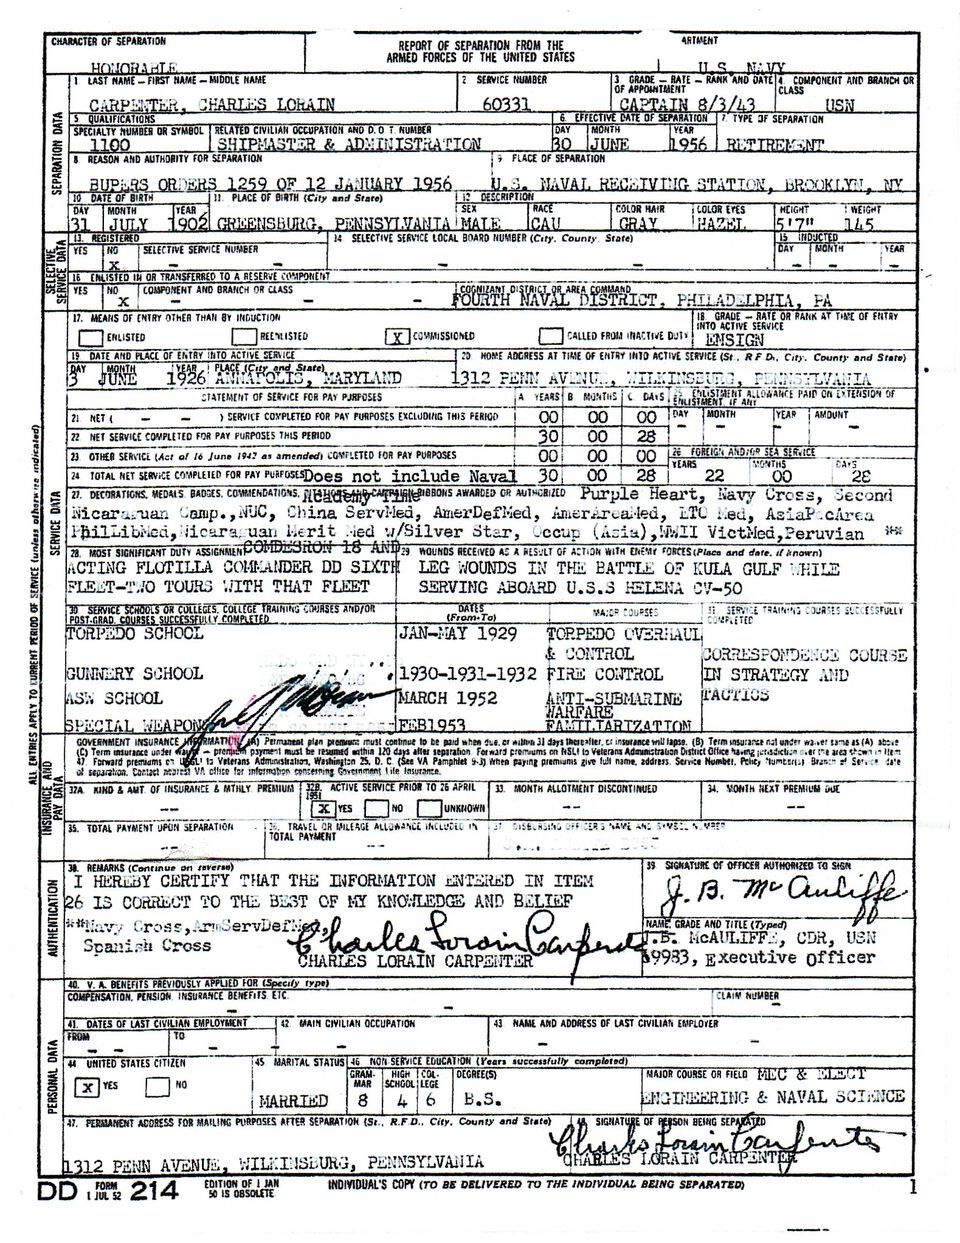 CHARACTER OF SEPARATION
HONORABLE
REPORT OF SEPARATION FROM THE
ARMED FORCES OF THE UNITED STATES
ARTMENT
U.S. NAVY
1 LAST NAME – FIRST NAME – MIDDLE NAME
CARPENTER, CHARLES LORAIN
2 SERVICE NUMBER
60331
3 GRADE – RATE – RANK AND DATE OF APPOINTMENT
CAPTAIN 8/3/43
4 COMPONENT AND BRANCH OR CLASS
USN
SEPARATION DATA
5 QUALIFICATIONS
SPECIALTY NUMBER OR SYMBOL
1100
RELATED CIVILIAN OCCUPATION AND D.O.T. NUMBER
SHIPMASTER & ADMINISTRATION
6 EFFECTIVE DATE OF SEPARATION
DAY MONTH YEAR
30 JUNE 1956
7 TYPE OF SEPARATION
RETIREMENT
8 REASON AND AUTHORITY FOR SEPARATION
BUPERS ORDERS 1259 OF 12 JANUARY 1956
9 PLACE OF SEPARATION
U.S. NAVAL RECEIVING STATION, BROOKLYN, NY
10 DATE OF BIRTH
DAY MONTH YEAR
31 JULY 1902
11 PLACE OF BIRTH (City and State)
GREENSBURG, PENNSYLVANIA
12 DESCRIPTION
SEX RACE COLOR HAIR COLOR EYES HEIGHT WEIGHT
MALE CAU GRAY HAZEL 5'7" 145
SELECTIVE SERVICE DATA
13 REGISTERED
YES NO SELECTIVE SERVICE NUMBER
X –
14 SELECTIVE SERVICE LOCAL BOARD NUMBER (City, County, State)
–
15 INDUCTED
DAY MONTH YEAR
– – –
16 ENLISTED IN OR TRANSFERRED TO A RESERVE COMPONENT
YES NO COMPONENT AND BRANCH OR CLASS
X – – –
COGNIZANT DISTRICT OR AREA COMMAND
FOURTH NAVAL DISTRICT, PHILADELPHIA, PA
ALL ENTRIES APPLY TO CURRENT PERIOD OF SERVICE (unless otherwise indicated)
SERVICE DATA
17. MEANS OF ENTRY OTHER THAN BY INDUCTION
ENLISTED REENLISTED X COMMISSIONED CALLED FROM INACTIVE DUTY
18 GRADE – RATE OR RANK AT TIME OF ENTRY INTO ACTIVE SERVICE
ENSIGN
19 DATE AND PLACE OF ENTRY INTO ACTIVE SERVICE
DAY MONTH YEAR PLACE (City and State)
3 JUNE 1926 ANNAPOLIS, MARYLAND
20 HOME ADDRESS AT TIME OF ENTRY INTO ACTIVE SERVICE (St., R.F.D., City, County and State)
1312 PENN AVENUE, WILKINSBURG, PENNSYLVANIA
STATEMENT OF SERVICE FOR PAY PURPOSES
A YEARS B MONTHS C DAYS
25 ENLISTMENT ALLOWANCE PAID ON EXTENSION OF ENLISTMENT, IF ANY
DAY MONTH YEAR AMOUNT
– – – –
21 NET ( – – ) SERVICE COMPLETED FOR PAY PURPOSES EXCLUDING THIS PERIOD
00 00 00
22 NET SERVICE COMPLETED FOR PAY PURPOSES THIS PERIOD
30 00 28
23 OTHER SERVICE (Act of 16 June 1942 as amended) COMPLETED FOR PAY PURPOSES
00 00 00
24 TOTAL NET SERVICE COMPLETED FOR PAY PURPOSES Does not include Naval Academy Time
30 00 28
26 FOREIGN AND/OR SEA SERVICE
YEARS MONTHS DAYS
22 00 28
27 DECORATIONS, MEDALS, BADGES, COMMENDATIONS, CITATIONS AND CAMPAIGN RIBBONS AWARDED OR AUTHORIZED Purple Heart, Navy Cross, Second
Nicaraguan Camp.,NUC, China ServMed, AmerDefMed, AmerAreaMed, LTC Med, AsiaPacArea
PhilLibMed,Nicaraguan Merit Med w/Silver Star, Occup (Asia),WWII VictMed,Peruvian **
28. MOST SIGNIFICANT DUTY ASSIGNMENT
COMDESRON 18 AND
ACTING FLOTILLA COMMANDER DD SIXTH
FLEET-TWO TOURS WITH THAT FLEET
29 WOUNDS RECEIVED AS A RESULT OF ACTION WITH ENEMY FORCES (Place and date, if known)
LEG WOUNDS IN THE BATTLE OF KULA GULF WHILE
SERVING ABOARD U.S.S HELENA CV-50
30 SERVICE SCHOOLS OR COLLEGES, COLLEGE TRAINING COURSES AND/OR POST-GRAD. COURSES SUCCESSFULLY COMPLETED
DATES (From-To)
MAJOR COURSES
31 SERVICE TRAINING COURSES SUCCESSFULLY COMPLETED
TORPEDO SCHOOL JAN-MAY 1929 TORPEDO OVERHAUL
& CONTROL
GUNNERY SCHOOL 1930-1931-1932 FIRE CONTROL
ASW SCHOOL MARCH 1952 ANTI-SUBMARINE
WARFARE
SPECIAL WEAPON FEB1953 FAMILIARIZATION
CORRESPONDENCE COURSE
IN STRATEGY AND
TACTICS
INSURANCE AND PAY DATA
GOVERNMENT INSURANCE INFORMATION. (A) Permanent plan premium must continue to be paid when due, or within 31 days thereafter, or insurance will lapse. (B) Term insurance not under waiver same as (A) above
(C) Term insurance under waiver – premium payment must be resumed within 120 days after separation. Forward premiums on NSLI to Veterans Administration District Office having jurisdiction over the area shown in Item
47. Forward premiums on USGLI to Veterans Administration, Washington 25, D. C. (See VA Pamphlet 9-3) When paying premiums give full name, address, Service Number, Policy Number(s) Branch of Service date
of separation. Contact nearest VA office for information concerning Government Life Insurance.
32A. KIND & AMT. OF INSURANCE & MTHLY. PREMIUM
--
32B. ACTIVE SERVICE PRIOR TO 26 APRIL 1951
X YES NO UNKNOWN
33. MONTH ALLOTMENT DISCONTINUED
--
34. MONTH NEXT PREMIUM DUE
--
35. TOTAL PAYMENT UPON SEPARATION
--
36. TRAVEL OR MILEAGE ALLOWANCE INCLUDED IN TOTAL PAYMENT
--
37. DISBURSING OFFICER'S NAME AND SYMBOL NUMBER
AUTHENTICATION
38. REMARKS (Continue on reverse)
I HEREBY CERTIFY THAT THE INFORMATION ENTERED IN ITEM
26 IS CORRECT TO THE BEST OF MY KNOWLEDGE AND BELIEF
**Navy Cross,ArmServDefMed,
Spanish Cross
Charles Lorain Carpenter
CHARLES LORAIN CARPENTER
39 SIGNATURE OF OFFICER AUTHORIZED TO SIGN
J. B. McAuliffe
NAME, GRADE AND TITLE (Typed)
J.B. McAULIFFE, CDR, USN
, Executive Officer
PERSONAL DATA
40. V. A. BENEFITS PREVIOUSLY APPLIED FOR (Specify type)
COMPENSATION, PENSION, INSURANCE BENEFITS, ETC.
–
CLAIM NUMBER
–
41. DATES OF LAST CIVILIAN EMPLOYMENT
FROM TO
– – – –
42. MAIN CIVILIAN OCCUPATION
–
43 NAME AND ADDRESS OF LAST CIVILIAN EMPLOYER
– –
44 UNITED STATES CITIZEN
X YES NO
45 MARITAL STATUS
MARRIED
46 NON-SERVICE EDUCATION (Years successfully completed)
GRAM-MAR HIGH SCHOOL COL-LEGE DEGREE(S)
8 4 6 B.S.
MAJOR COURSE OR FIELD MEC & ELECT
ENGINEERING & NAVAL SCIENCE
47. PERMANENT ADDRESS FOR MAILING PURPOSES AFTER SEPARATION (St., R.F.D., City, County and State)
1312 PENN AVENUE, WILKINSBURG, PENNSYLVANIA
48. SIGNATURE OF PERSON BEING SEPARATED
Charles Lorain Carpenter
CHARLES LORAIN CARPENTER
DD FORM 1 JUL 52 214
EDITION OF 1 JAN 50 IS OBSOLETE
INDIVIDUAL'S COPY (TO BE DELIVERED TO THE INDIVIDUAL BEING SEPARATED)
1